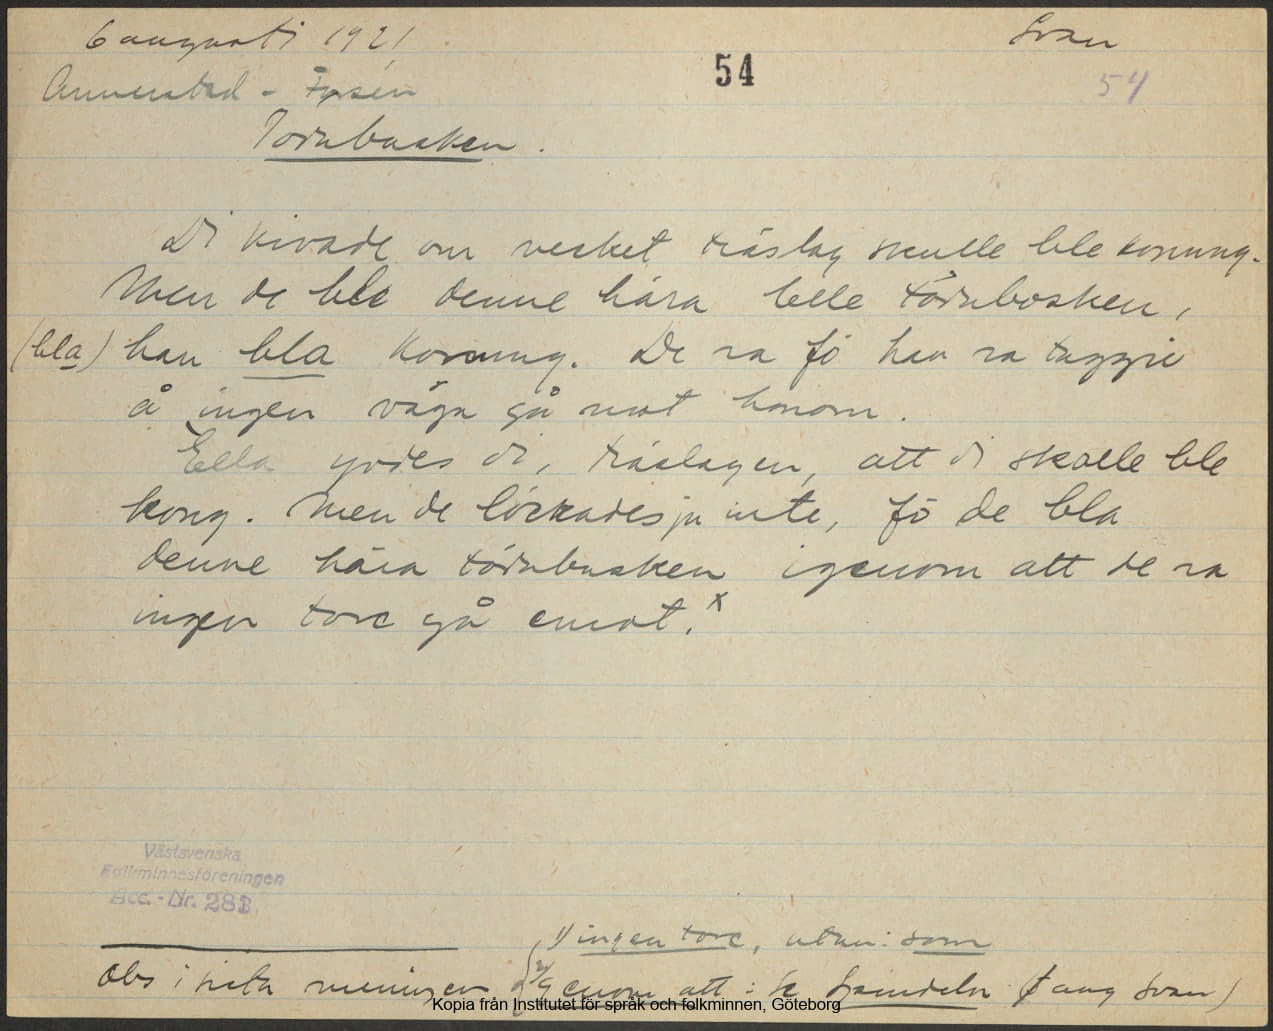 6 augusti 1921
Svan
54
54
Annerstad - Fysén
Törnbusken.
Di kivade om vecket träslag skulle ble konung.
Men de ble denne hära lelle törnbosken,
(bla) han bla konung. De va fö han va taggie
å ingen våga gå mot honom.
Ella grodes di, träslagen, att di skolle ble
kong. Men de löckades ju inte, fö de bla
denne hära törnbusken igenom att de va
ingen tore gå emot. x
Västsvenska
Folkminnesföreningen
Acc. - Nr. 283.
1) ingen tore, utan: som
Obs i sista meningen
2) genom att : se
ang Svan)
Kopia från Institutet för språk och folkminnen, Göteborg